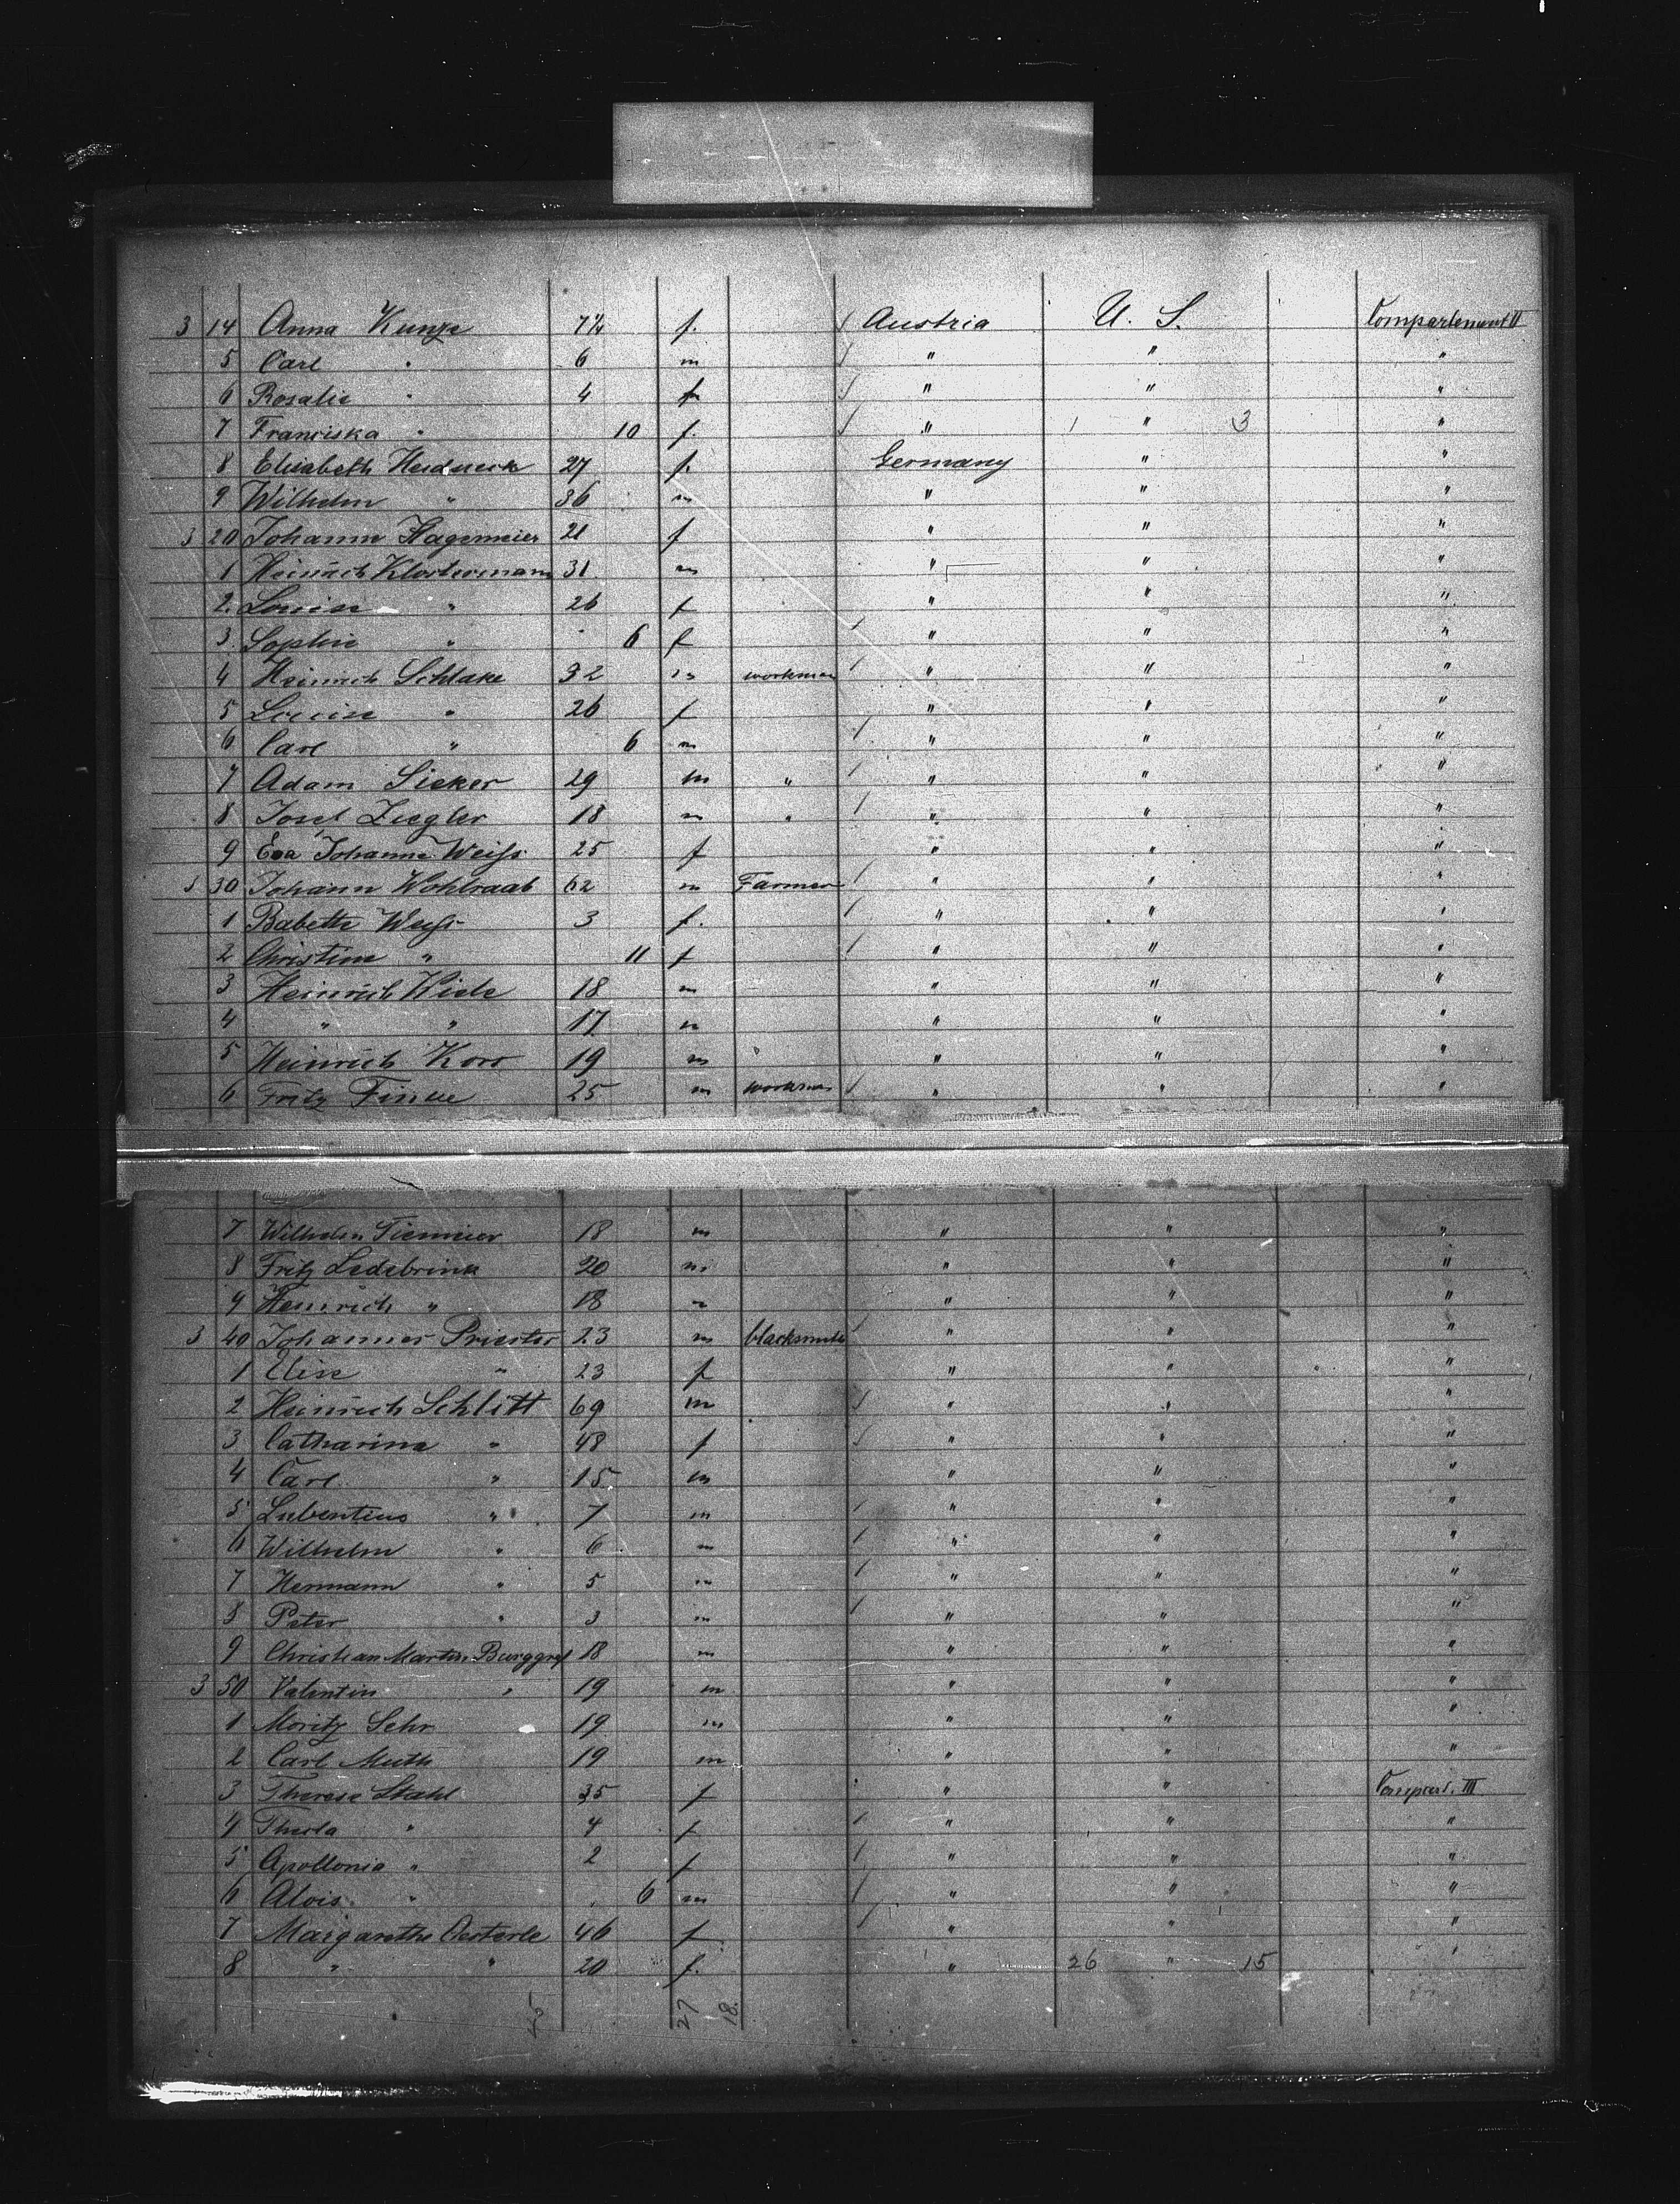 3 14 Anna Kunze 7¼ f. / Austria U. S. Compartement II
5 Carl " 6 m / " " "
6 Rosalie " 4 f / " " "
7 Franciska " 10 f. / " 1 " 3 "
8 Elisabeth 27 f. Germany " "
9 Wilhelm " 36 m " " "
3 20 Johanne Hagemeier 21 f " " "
1 Heinrich Klostermann 31 m " " "
2. Louise " 26 f " " "
3. Sophie " 6 f / " " "
4 Heinrich Schlake 32 m workman / " " "
5 Louise " 26 f " " "
6 Carl " 6 m / " " "
7 Adam Sieker 29 m " / " " "
8 Josef Ziegler 18 m " / " " "
9 Eva Johanne Weiss 25 f " " "
3 30 Johann Wohlraab 62 m Farmer / " " "
1 Babette Weiss 3 f. / " " "
2 Christine " 11 f / " " "
3 Heinrich Wiele 18 m " " "
4 " " 17 m " " "
5 Heinrich Koro 19 m " " "
6 Fritz Finke 25 m workman / " " "
7 Wilhelm Tiemeier 18 m " " "
8 Fritz Ledebrink 20 m " " "
9 Heinrich " 18 m " " "
3 40 Johannes Priester 23 m blacksmith / " " "
1 Elise " 23 f " " "
2 Heinrich Schlitt 69 m / " " "
3 Catharina " 48 f / " " "
4 Carl " 15 m " " "
5 Lubentius " 7 m / " " "
6 Wilhelm " 6 m / " " "
7 Hermann " 5 m / " " "
8 Peter " 3 m / " " "
9 Christian Martin Burggraf 18 m " " "
3 50 Valentin " 19 m " " "
1 Moritz Sehr 19 m " " "
2 Carl Muth 19 m " " "
3 Therese Stahl 35 f " " Compart. III
4 Thecla " 4 f / " " "
5 Apollonia " 2 f / " " "
6 Alois " 6 m / " " "
7 Margarethe Oesterle 46 f / " " "
8 " " 20 f. " 26 " 15 "
45 27 18.